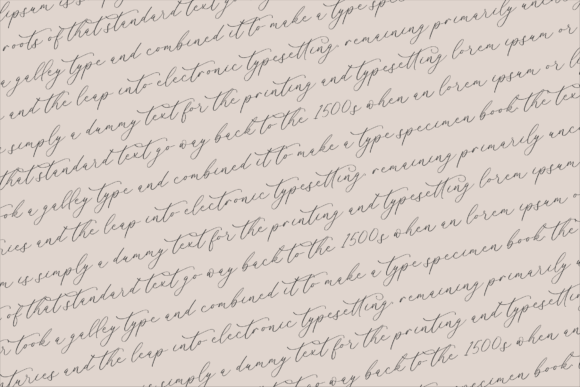 ipsum is
roots of that standard text go
a galley type and combined it to make a type
and the leap into electronic typesetting remaining primarily
simply a dummy text for the printing and typesetting lorem ipsum or
that standard text go way back to the 1500s when an lorem ipsum or
took a galley type and combined it to make a type specimen book the
and the leap into electronic typesetting remaining primarily
is simply a dummy text for the printing and typesetting lorem ipsum
of that standard text go way back to the 1500s when an lorem ipsum
took a galley type and combined it to make a type specimen book the
centuries and the leap into electronic typesetting remaining primarily
simply a dummy text for the printing and typesetting
that standard text go way back to the 1500s when an
type and combined it to make a type specimen book